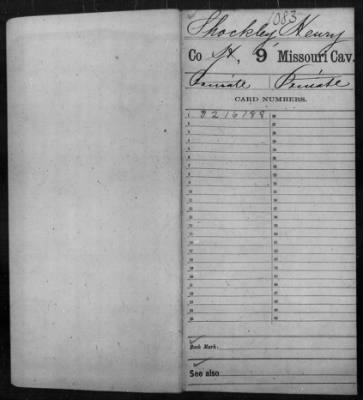 1083
Shockley Henry
Co H, 9 Missouri Cav.
Private Private
CARD NUMBERS.
1 3216188
Book Mark.
See also